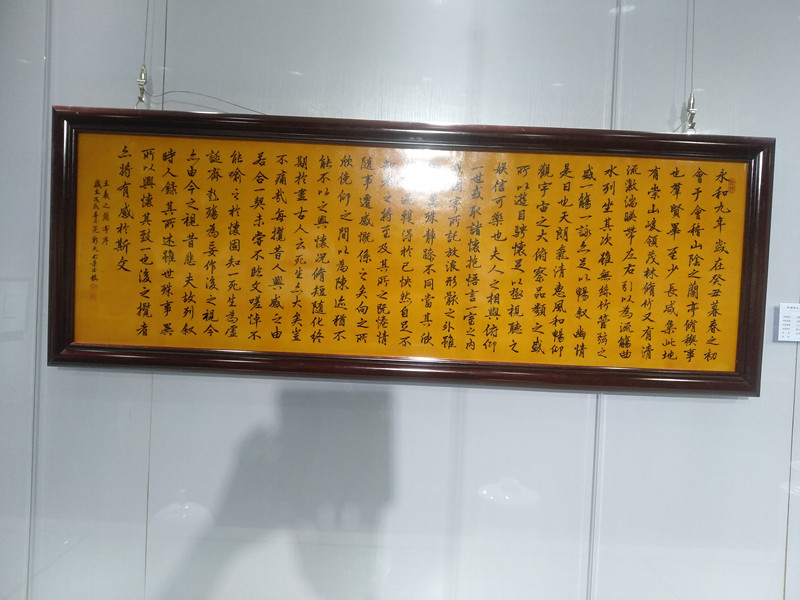 永和九年歲在癸丑暮春之初
會于會稽山陰之蘭亭脩稧事
也羣賢畢至少長咸集此地
有崇山峻領茂林脩竹又有清
流激湍暎帶左右引以為流觴曲
水列坐其次雖無絲竹管弦之
盛一觴一詠亦足以暢叙幽情
是日也天朗氣清惠風和暢仰
觀宇宙之大俯察品類之盛
所以遊目騁懷足以極視聽之
娛信可樂也夫人之相與俯仰
一世或取諸懷抱悟言一室之內
因寄所託放浪形骸之外雖
萬殊靜躁不同當其欣
暫得於己快然自足不
之將至及其所之既惓情
隨事遷感慨係之矣向之所
欣俛仰之間以為陳迹猶不
能不以之興懷況脩短隨化終
期於盡古人云死生亦大矣豈
不痛哉每攬昔人興感之由
若合一契未嘗不臨文嗟悼不
能喻之於懷固知一死生為虛
誕齊彭殤為妄作後之視今
亦由今之視昔悲夫故列叙
時人錄其所述雖世殊事異
所以興懷其致一也後之攬者
亦將有感於斯文
王羲之蘭亭序